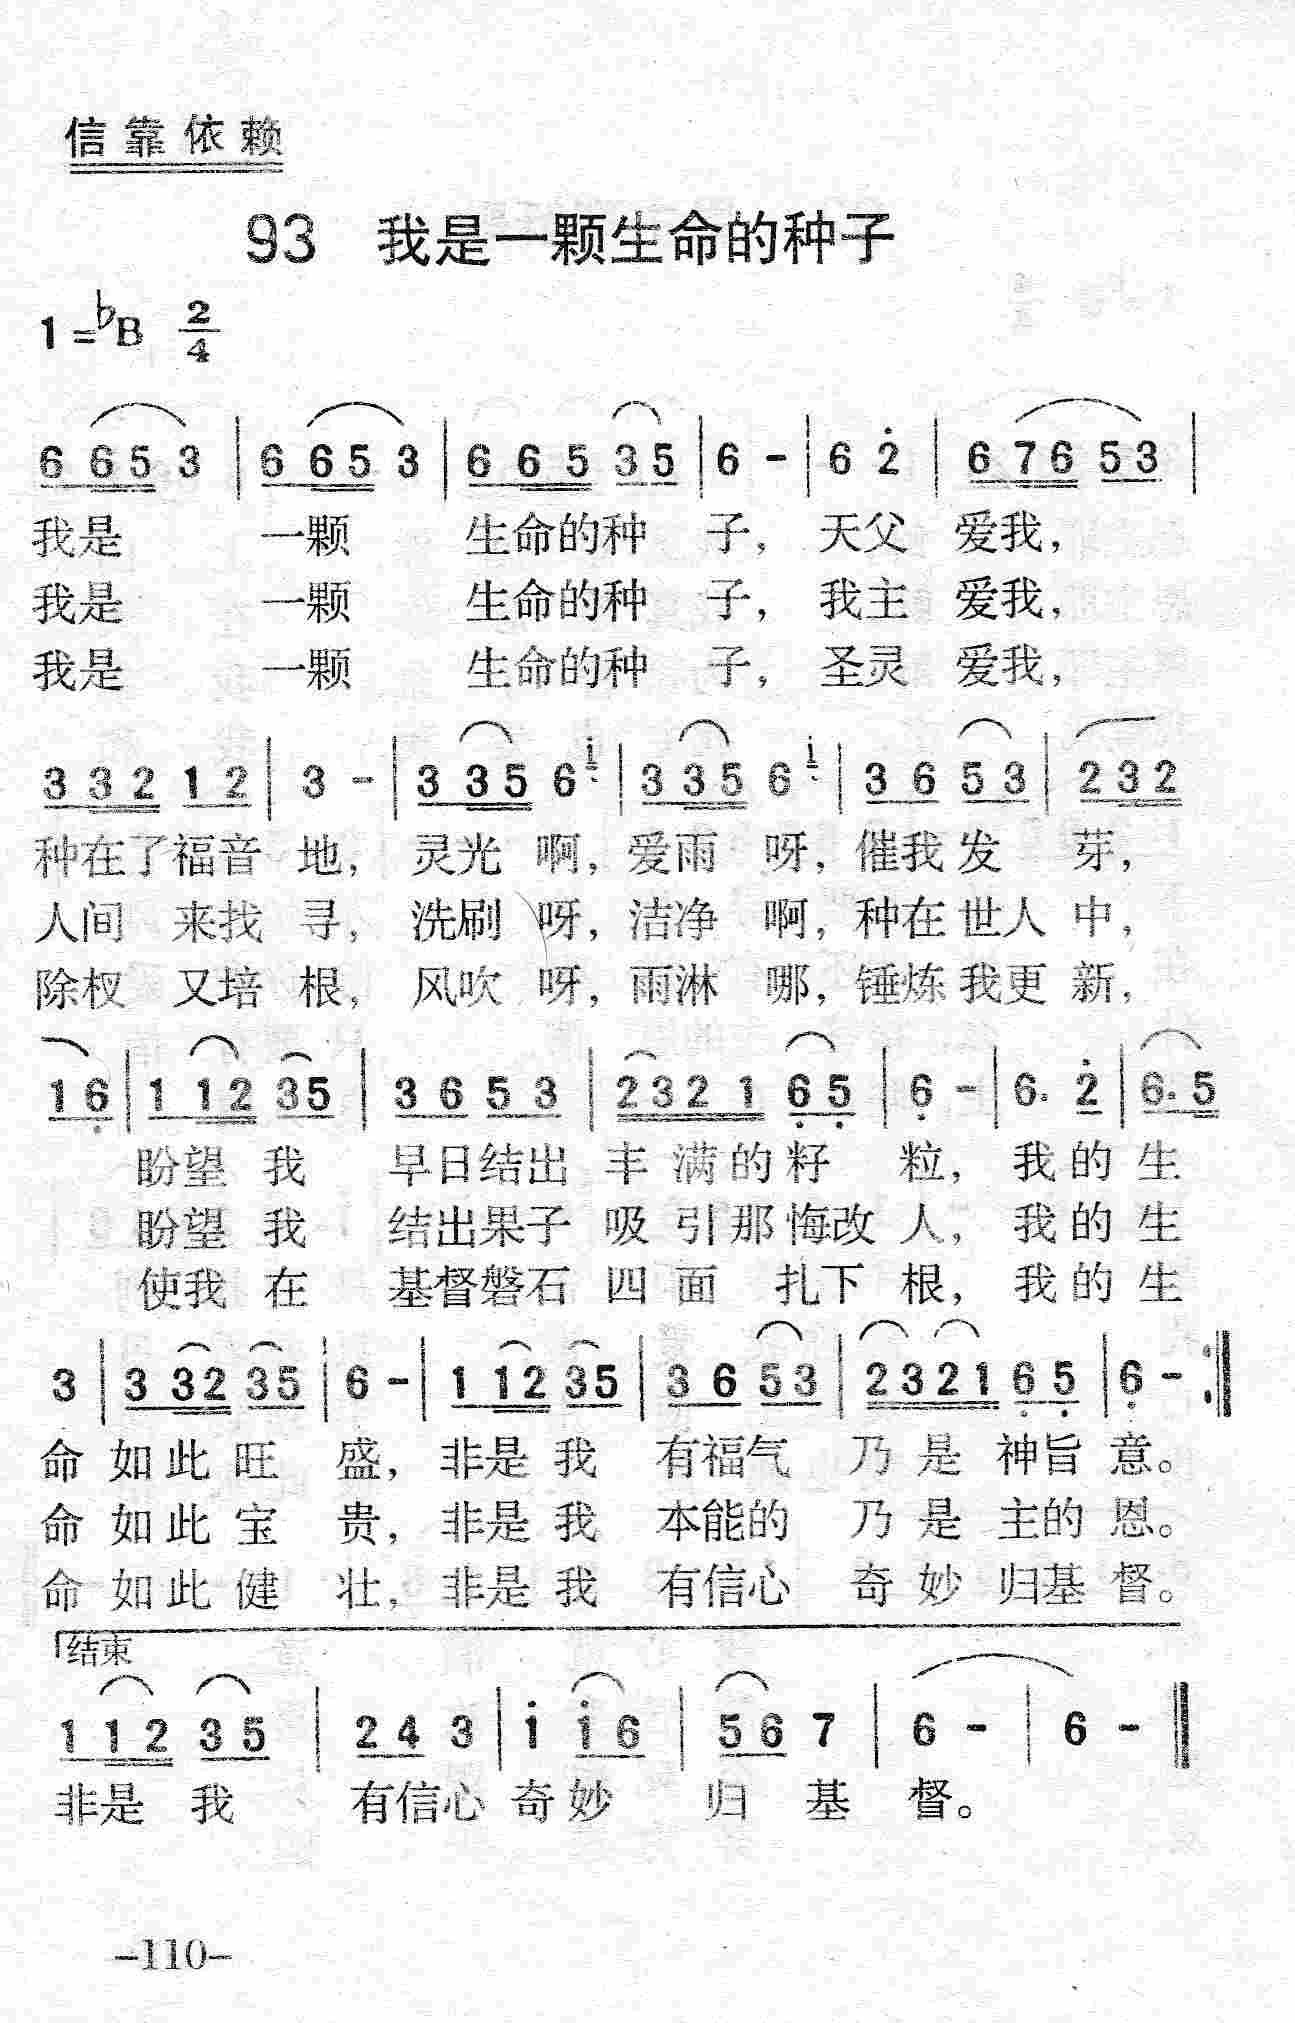 信靠依赖
93 我是一颗生命的种子
1=♭B 2/4
6 6 5 3 | 6 6 5 3 | 6 6 5 3 5 | 6 - | 6 2̇ | 6 7 6 5 3 |
我是 一颗 生命的种 子, 天父 爱我,
我是 一颗 生命的种 子, 我主 爱我,
我是 一颗 生命的种 子, 圣灵 爱我,
3 3 2 1 2 | 3 - | 3 3 5 6 i | 3 3 5 6 i | 3 6 5 3 | 2 3 2
种在了福音 地, 灵光 啊, 爱雨 呀, 催我发 芽,
人间 来找 寻, 洗刷 呀, 洁净 啊, 种在世人 中,
除杈 又培 根, 风吹 呀, 雨淋 哪, 锤炼我更 新,
1 6̣ | 1 1 2 3 5 | 3 6 5 3 | 2 3 2 1 6̣ 5̣ | 6̣ - | 6. 2̇ | 6. 5
盼望 我 早日结出 丰 满的籽 粒, 我的 生
盼望 我 结出果子 吸 引那悔改 人, 我的 生
使我 在 基督磐石 四 面 扎下 根, 我的 生
3 | 3 3 2 3 5 | 6 - | 1 1 2 3 5 | 3 6 5 3 | 2 3 2 1 6̣ 5̣ | 6̣ - :‖
命 如此 旺 盛, 非是 我 有福气 乃 是 神旨 意。
命 如此 宝 贵, 非是 我 本能的 乃 是 主的 恩。
命 如此 健 壮, 非是 我 有信心 奇 妙 归基 督。
结束
1 1 2 3 5 | 2 4 3 | i i 6 | 5 6 7 | 6 - | 6 - ‖
非是 我 有信心 奇妙 归 基 督。
-110-